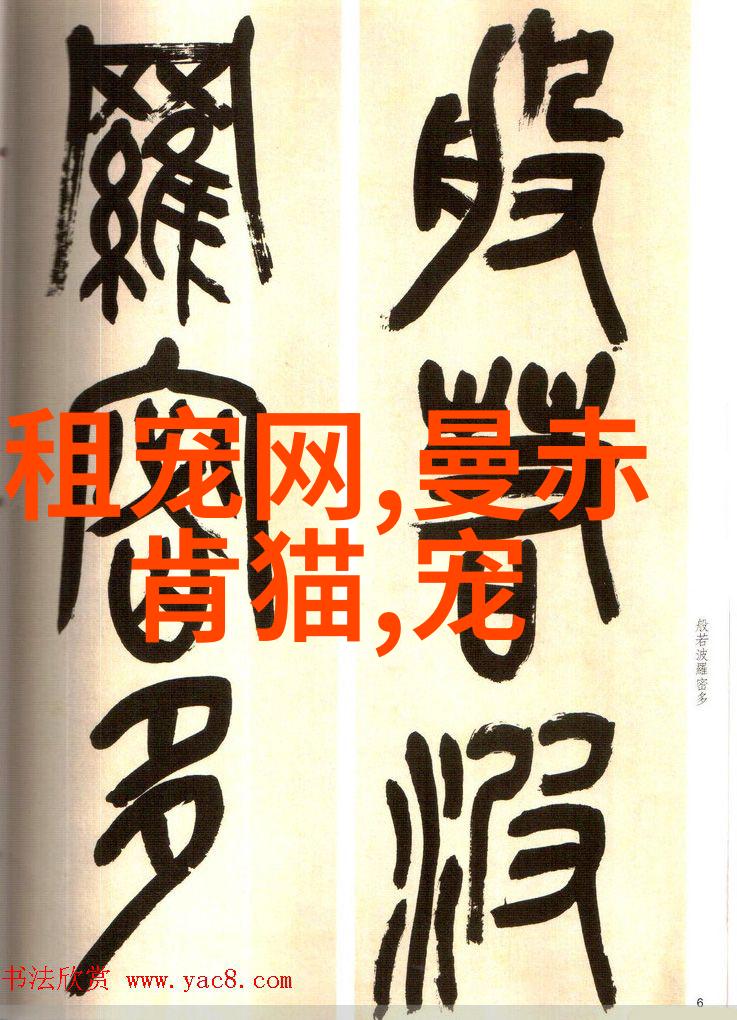 般若波
羅密多
租宠网,曼赤
肯猫,宠
般若波羅密多
书法欣赏 www.yac8.com
6